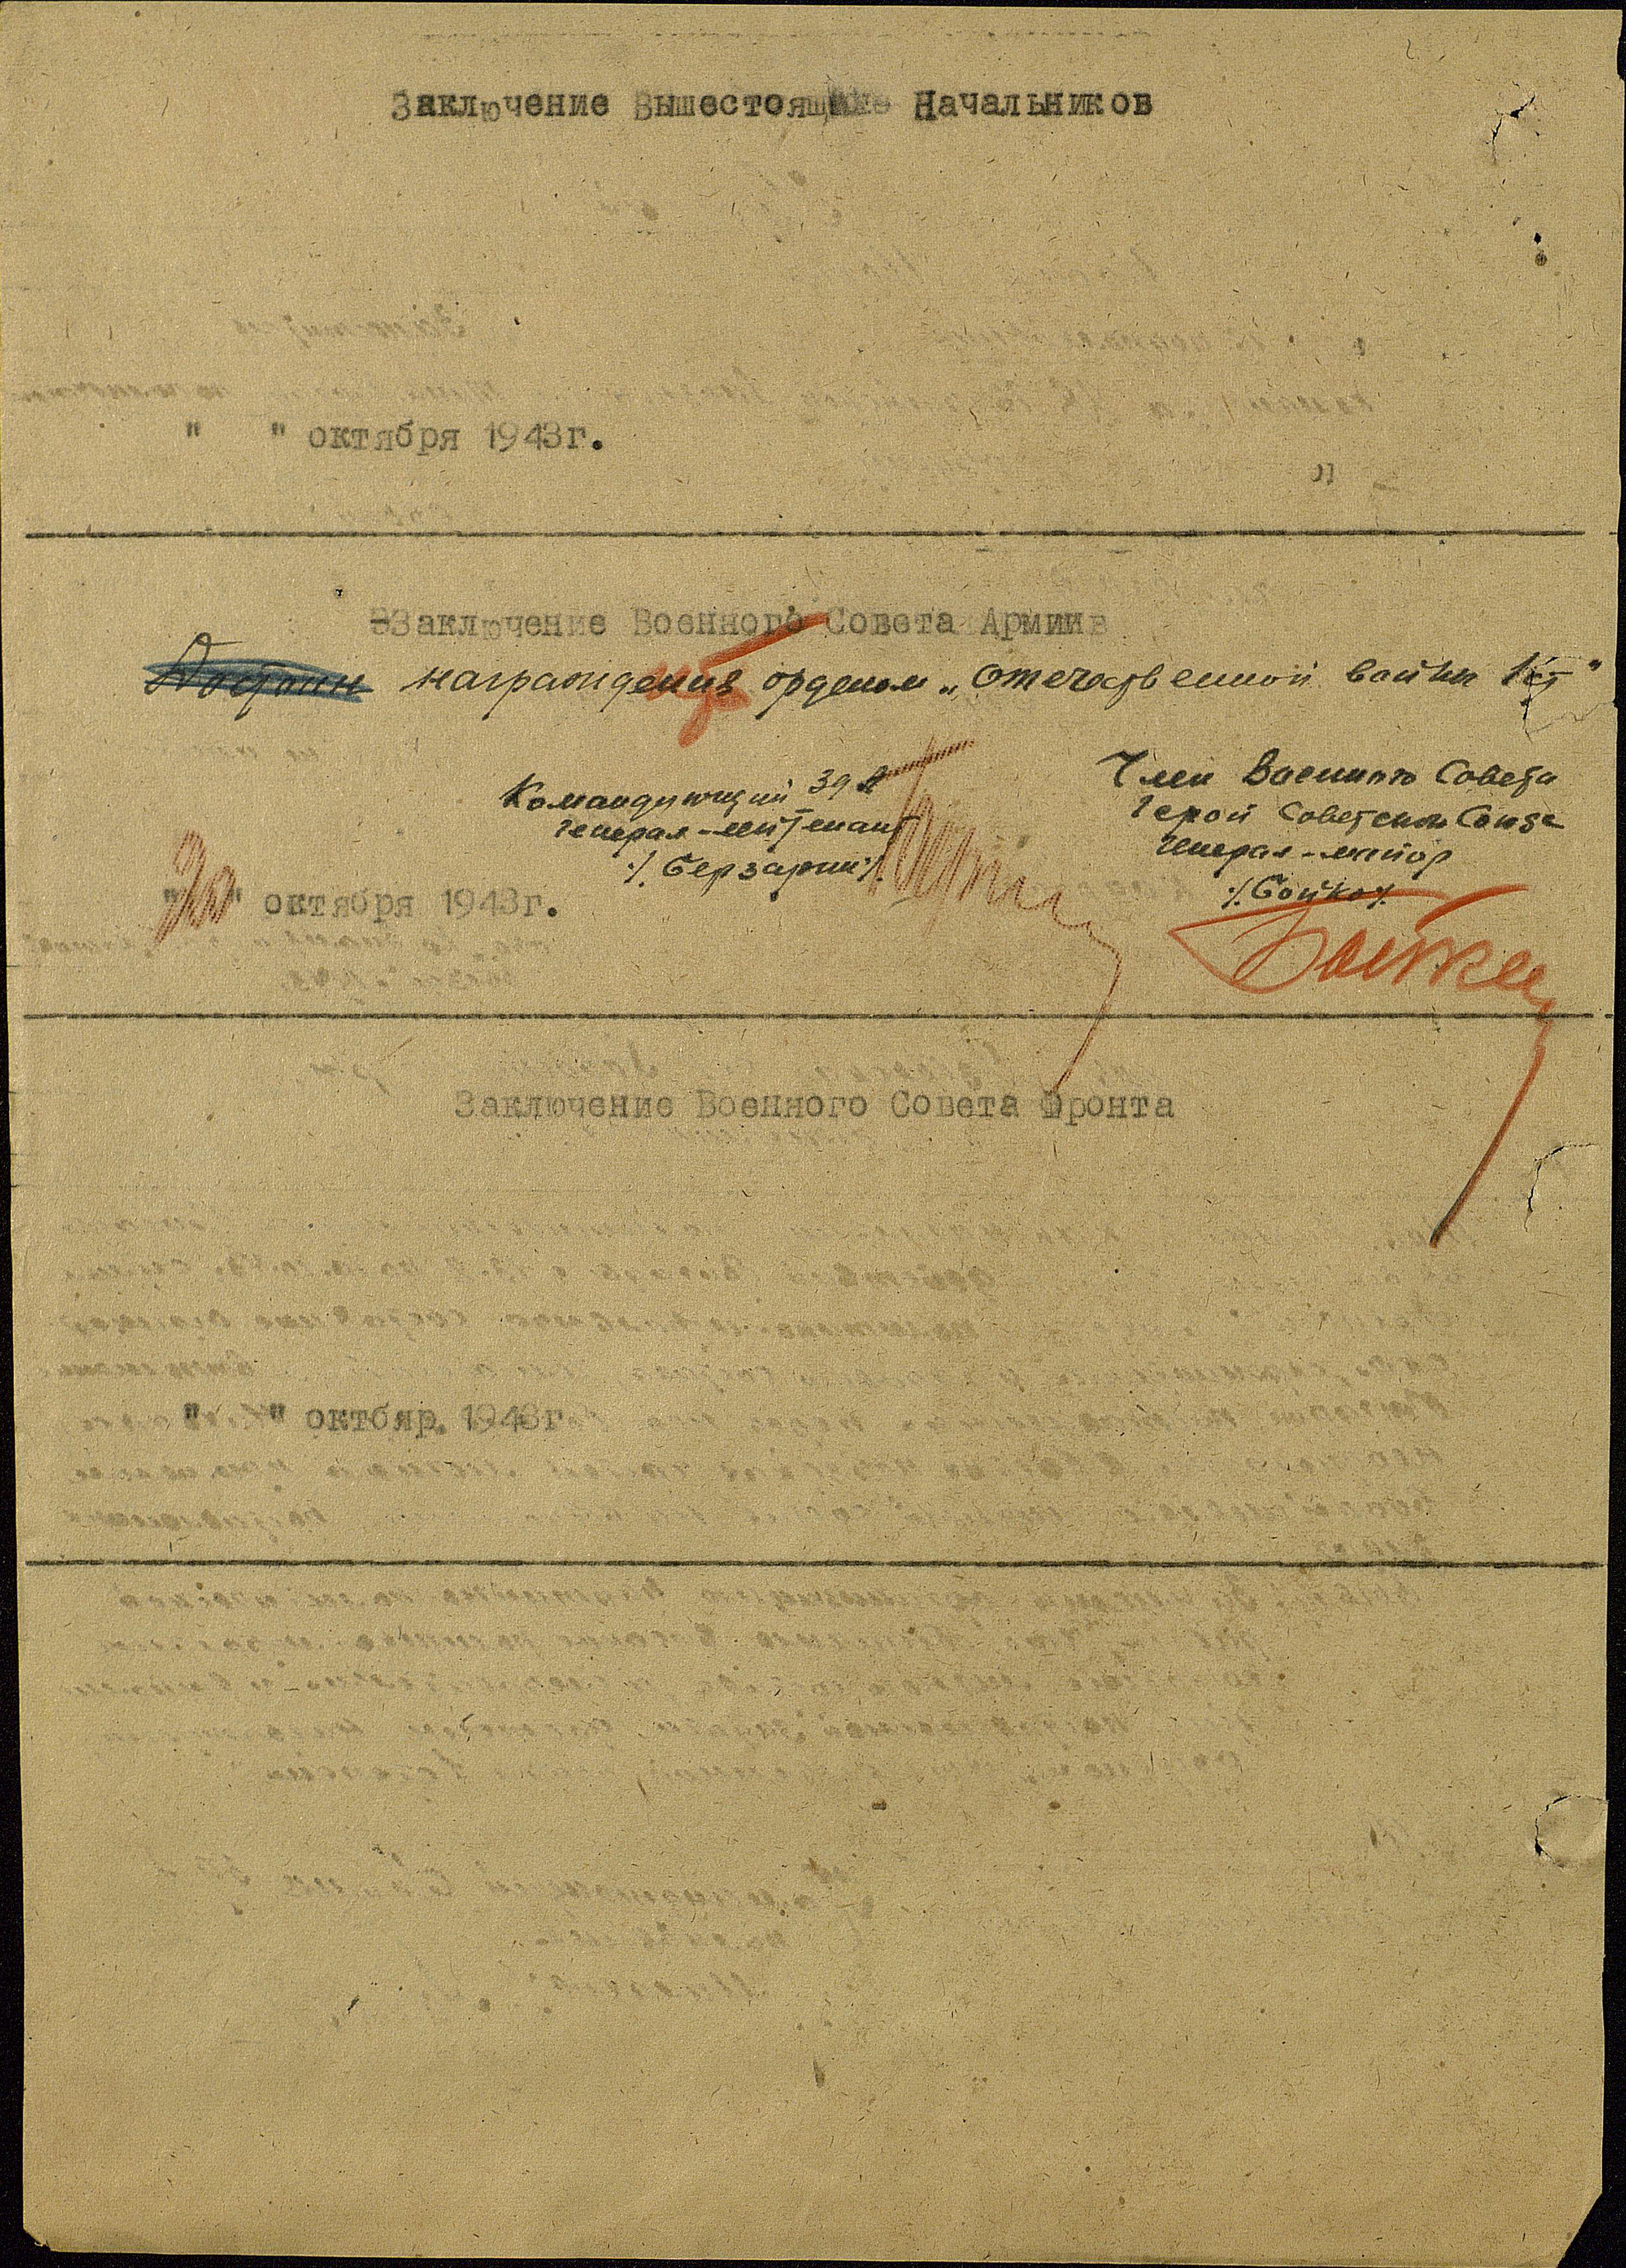 Заключение Вышестоящих Начальников
" " октября 1943г.
ЗЗаключение Военного Совета Армии
Достоин награждения орденом „Отечественной войны 1 ст"
Командующий 39 А
Генерал-лейтенант
/. Берзарин /.
Член Военного Совета
Герой Советского Союза
Генерал-майор
/. Бойко /.
"30" октября 1943г.
Бойко
Заключение Военного Совета Фронта
" " октбяр. 1943г